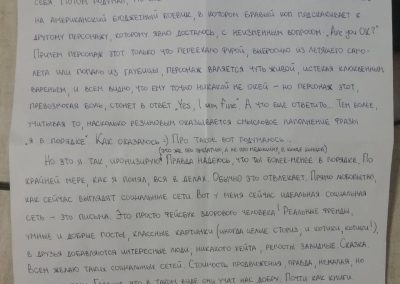 себя потом подумал, по
на американский бюджетный боевик, в котором бравый коп подскакивает к
другому персонажу, которому явно досталось, с неизменным вопросом „Are you OK?"
Причем персонаж этот только что переехало фурой, выбросило из летящего само-
лета или попало из гаубицы, персонаж валяется чуть живой, истекая клюквенным
вареньем, и всем видно, что ему только никакой не окей – но персонаж этот,
превозмогая боль, стонет в ответ „Yes, I am fine". А что еще ответить... Тем более,
учитывая то, насколько резиновым оказывается смысловое наполнение фразы
„я в порядке". Как оказалось :) Про такое вот подумалось...
(это же про позитив, а не про
Но это я так, иронизирую. Правда надеюсь, что ты более-менее в порядке. По
крайней мере, как я понял, вся в делах. Обычно это отвлекает. Прямо любопытно,
как сейчас выглядят социальные сети. Вот у меня сейчас идеальная социальная
сеть – это письма. Это просто фейсбук здорового человека! Реальные френды,
умные и добрые посты, классные картинки (иногда целые сториз, и котики, котики!),
в друзья добавляются интересные люди, никакого хейта, репосты завидные. Сказка.
Всем желаю таких социальных сетей. Стоимость продвижения, правда, немалая, но
это в таком виде они учат нас добру. Почти как книги.